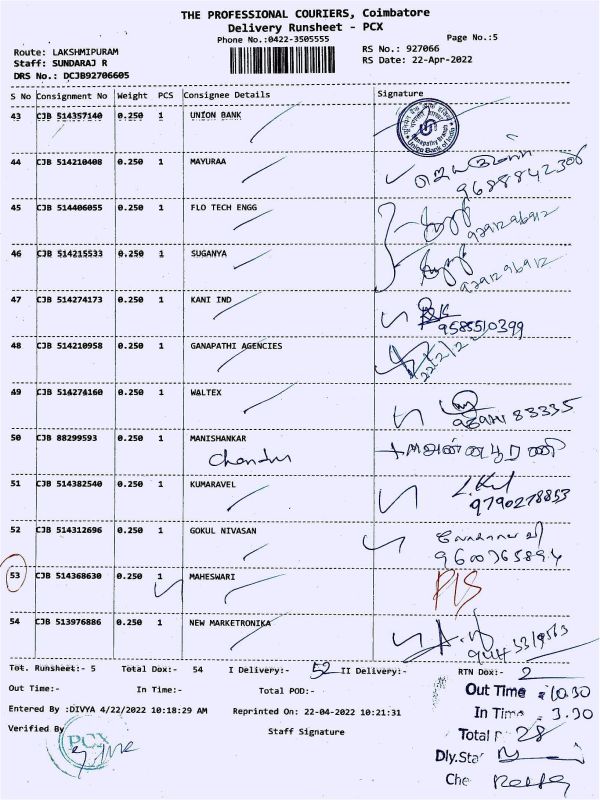 THE PROFESSIONAL COURIERS, Coimbatore
Delivery Runsheet - PCX
Phone No.:0422-3505555
Page No.:5
Route: LAKSHMIPURAM
RS No.: 927066
Staff: SUNDARAJ R
RS Date: 22-Apr-2022
DRS No.: DCJB92706605
S No Consignment No Weight PCS Consignee Details Signature
43 CJB 514357140 0.250 1 UNION BANK
44 CJB 514210408 0.250 1 MAYURAA
9688842308
45 CJB 514406055 0.250 1 FLO TECH ENGG
9291296912
46 CJB 514215533 0.250 1 SUGANYA
9291296912
47 CJB 514274173 0.250 1 KANI IND
9585510399
48 CJB 514210958 0.250 1 GANAPATHI AGENCIES
49 CJB 514274160 0.250 1 WALTEX
50 CJB 88299593 0.250 1 MANISHANKAR
Chandru
அன்னபூரணி
51 CJB 514382540 0.250 1 KUMARAVEL
9790278853
52 CJB 514312696 0.250 1 GOKUL NIVASAN
9600765894
53 CJB 514368630 0.250 1 MAHESWARI
54 CJB 513976886 0.250 1 NEW MARKETRONIKA
Tot. Runsheet:- 5 Total Dox:- 54 I Delivery:- 52 II Delivery:- RTN Dox:- 2
Out Time:- In Time:- Total POD:-
Out Time 10.30
Entered By :DIVYA 4/22/2022 10:18:29 AM Reprinted On: 22-04-2022 10:21:31
In Time 3.30
Verified By Staff Signature
Total 28
PCX
Dly.Sta
Che